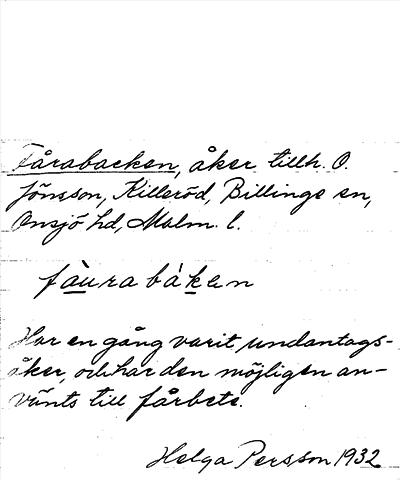 Fårabacken, åker tillh. O.
Jönsson, Killeröd, Billinge sn,
Onsjö hd, Malm. l.
fàurabáken
Har en gång varit undantags-
åker, och har den möjligen an-
vänts till fårbete.
Helga Persson 1932